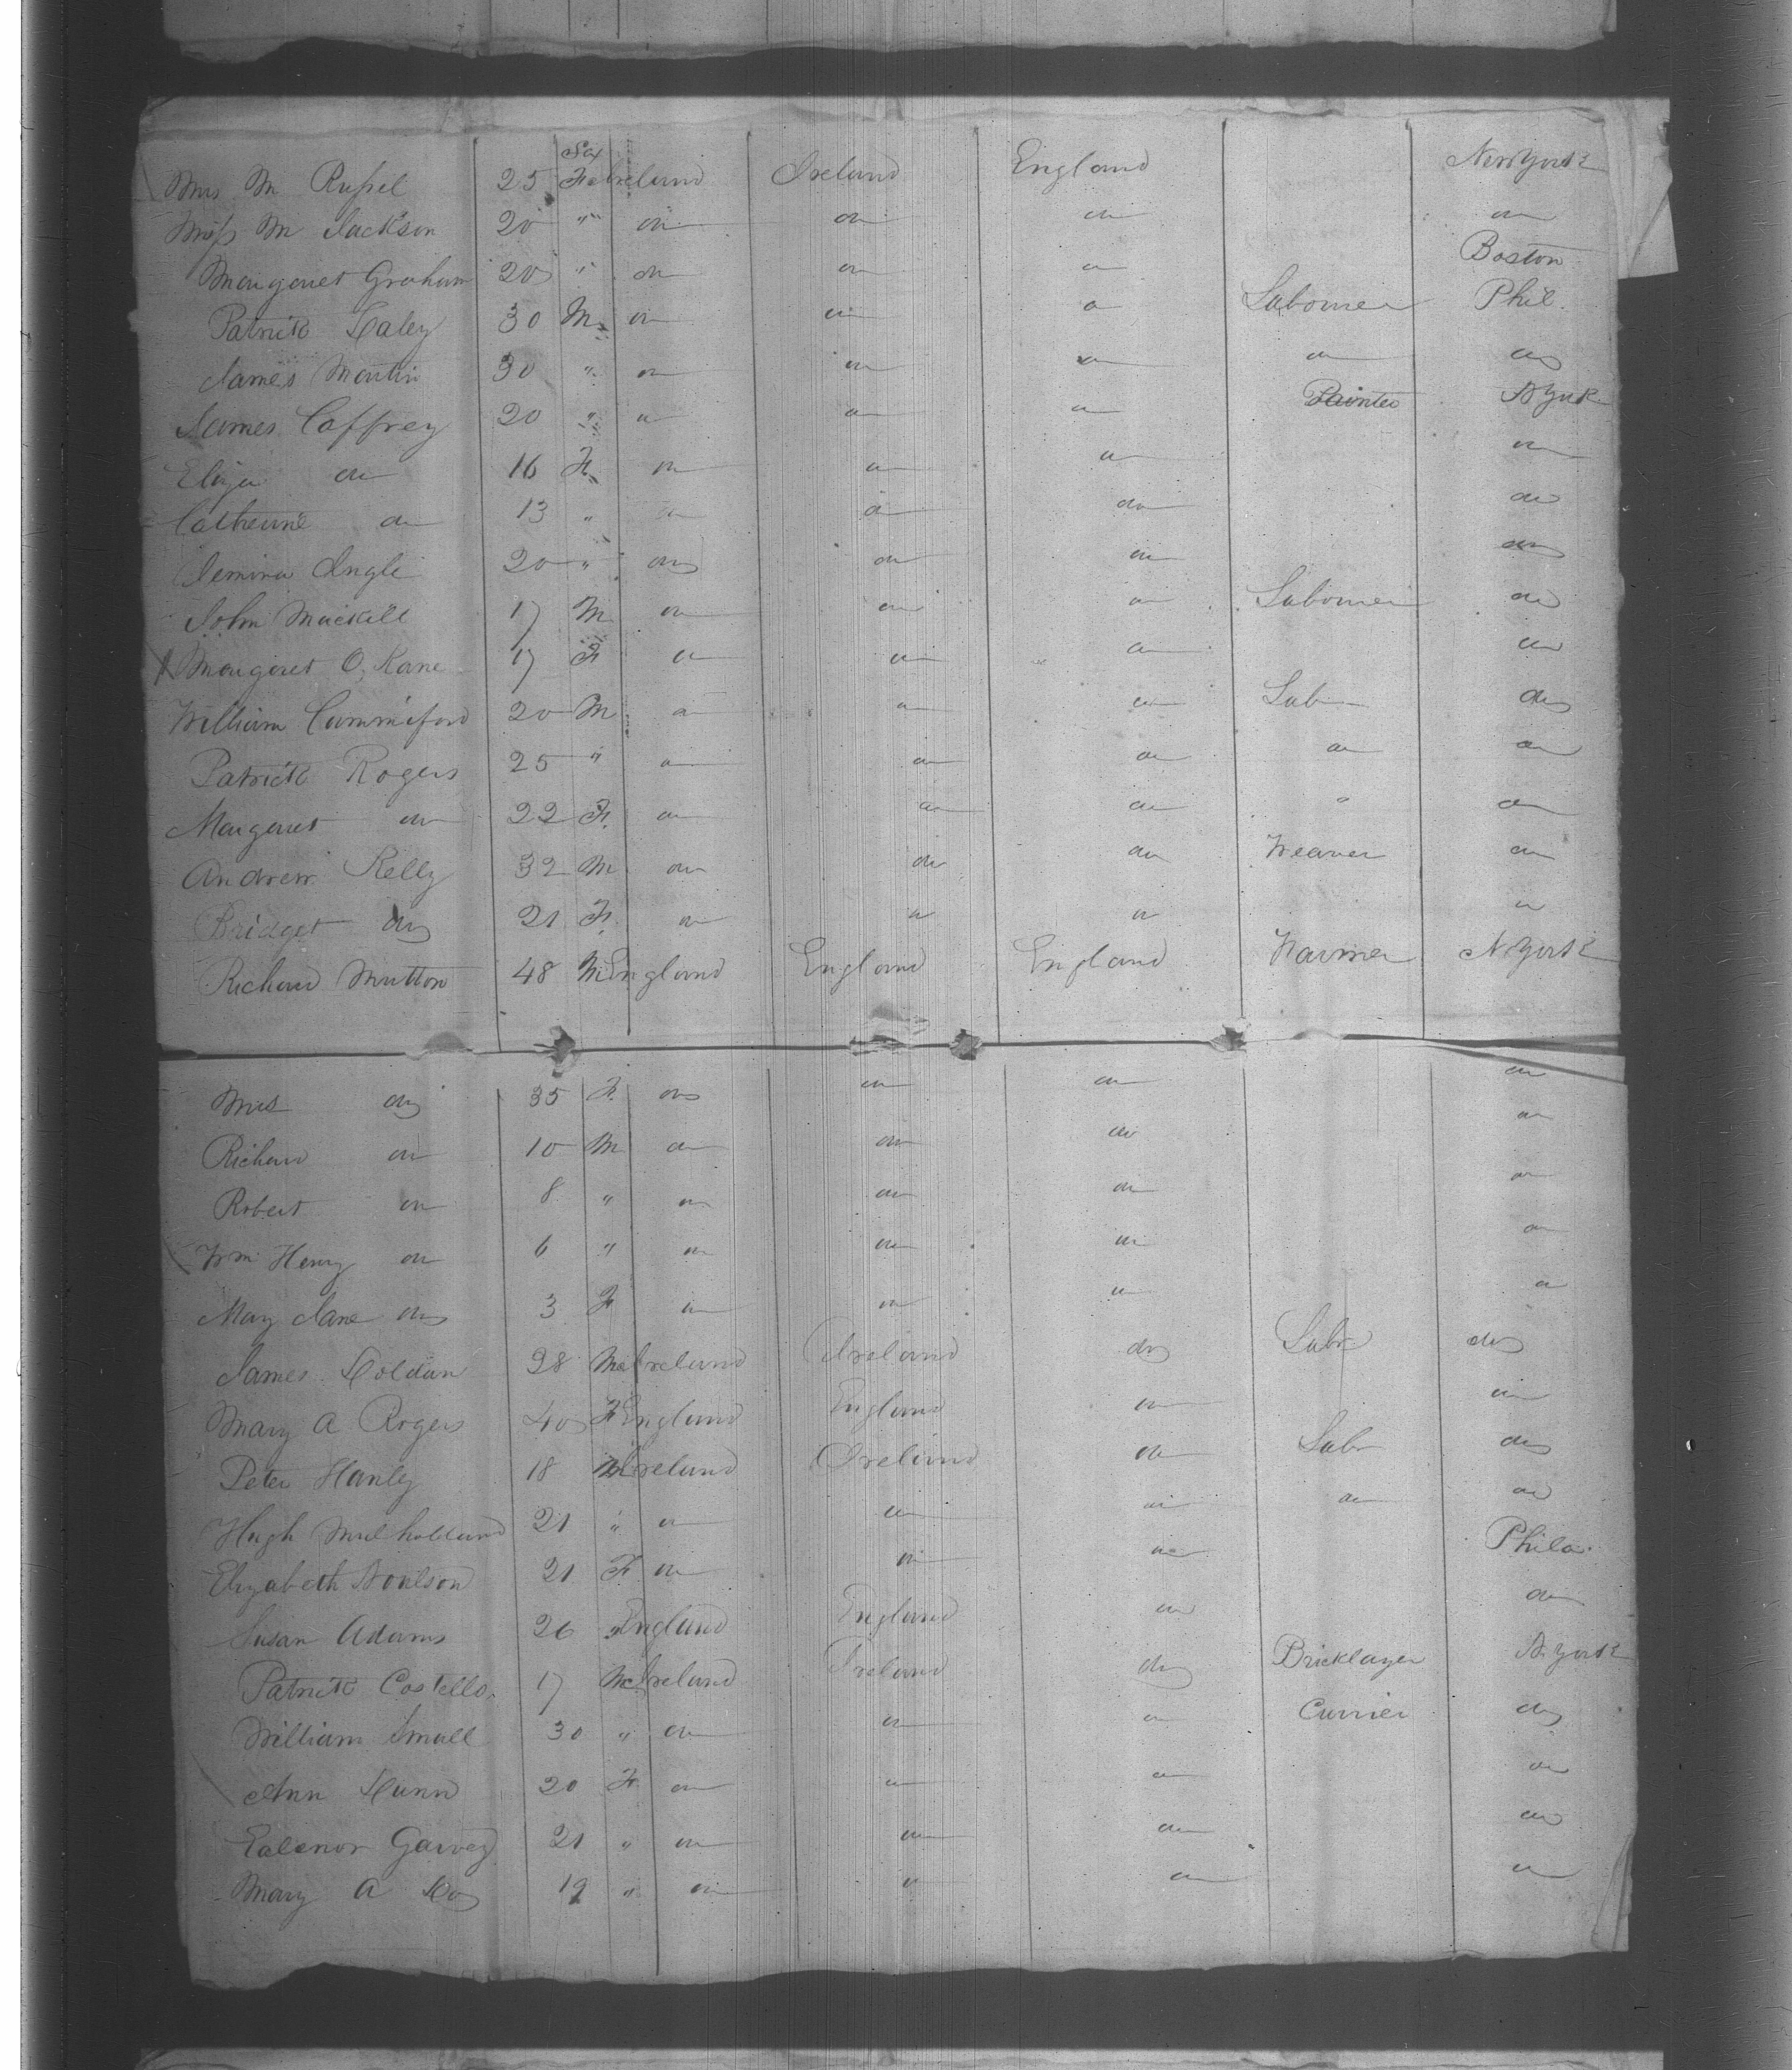 Sex
Mrs M Russel 25 Fe Ireland Ireland England New York
Miss M Jackson 20 " do do do do
Margaret Graham 20 " do do do Boston
Patrick Daley 30 M do do do Labourer Phil.
James Martin 30 " do do do do do
James Caffrey 20 " do do do Painter N York
Eliza do 16 F do do do do
Catherine do 13 " do do do do
Jemima Angle 20 " do do do do
John Mackill 17 M do do do Labourer do
Margaret O, Kane 17 F do do do do
William Cummiford 20 M do do do Lab do
Patrick Rogers 25 " do do do do do
Margaret do 22 F do do do " do
Andrew Kelly 32 M do do do Weaver do
Bridget do 21 F. do do do do
Richard Mutton 48 M England England England Farmer N York
Mrs do 35 F. do do do do
Richard do 10 M do do do do
Robert do 8 " do do do do
Wm Henry do 6 " do do do do
Mary Jane do 3 F do do do do
James Doldan 28 M Ireland Ireland do Labr do
Mary A Rogers 40 F England England do do
Peter Hanly 18 M Ireland Ireland do Labr do
Hugh Mulholland 21 " do do do do do
Elizabeth 21 F do do do Phila.
Susan Adams 26 " England England do do
Patrick Costello. 17 M Ireland Ireland do Bricklayer N. York
William Small 30 " do do do Currier do
Ann Dunn 20 F do do do do
Ealenor Garvey 21 " do do do do
Mary A Do 19 " do do do do